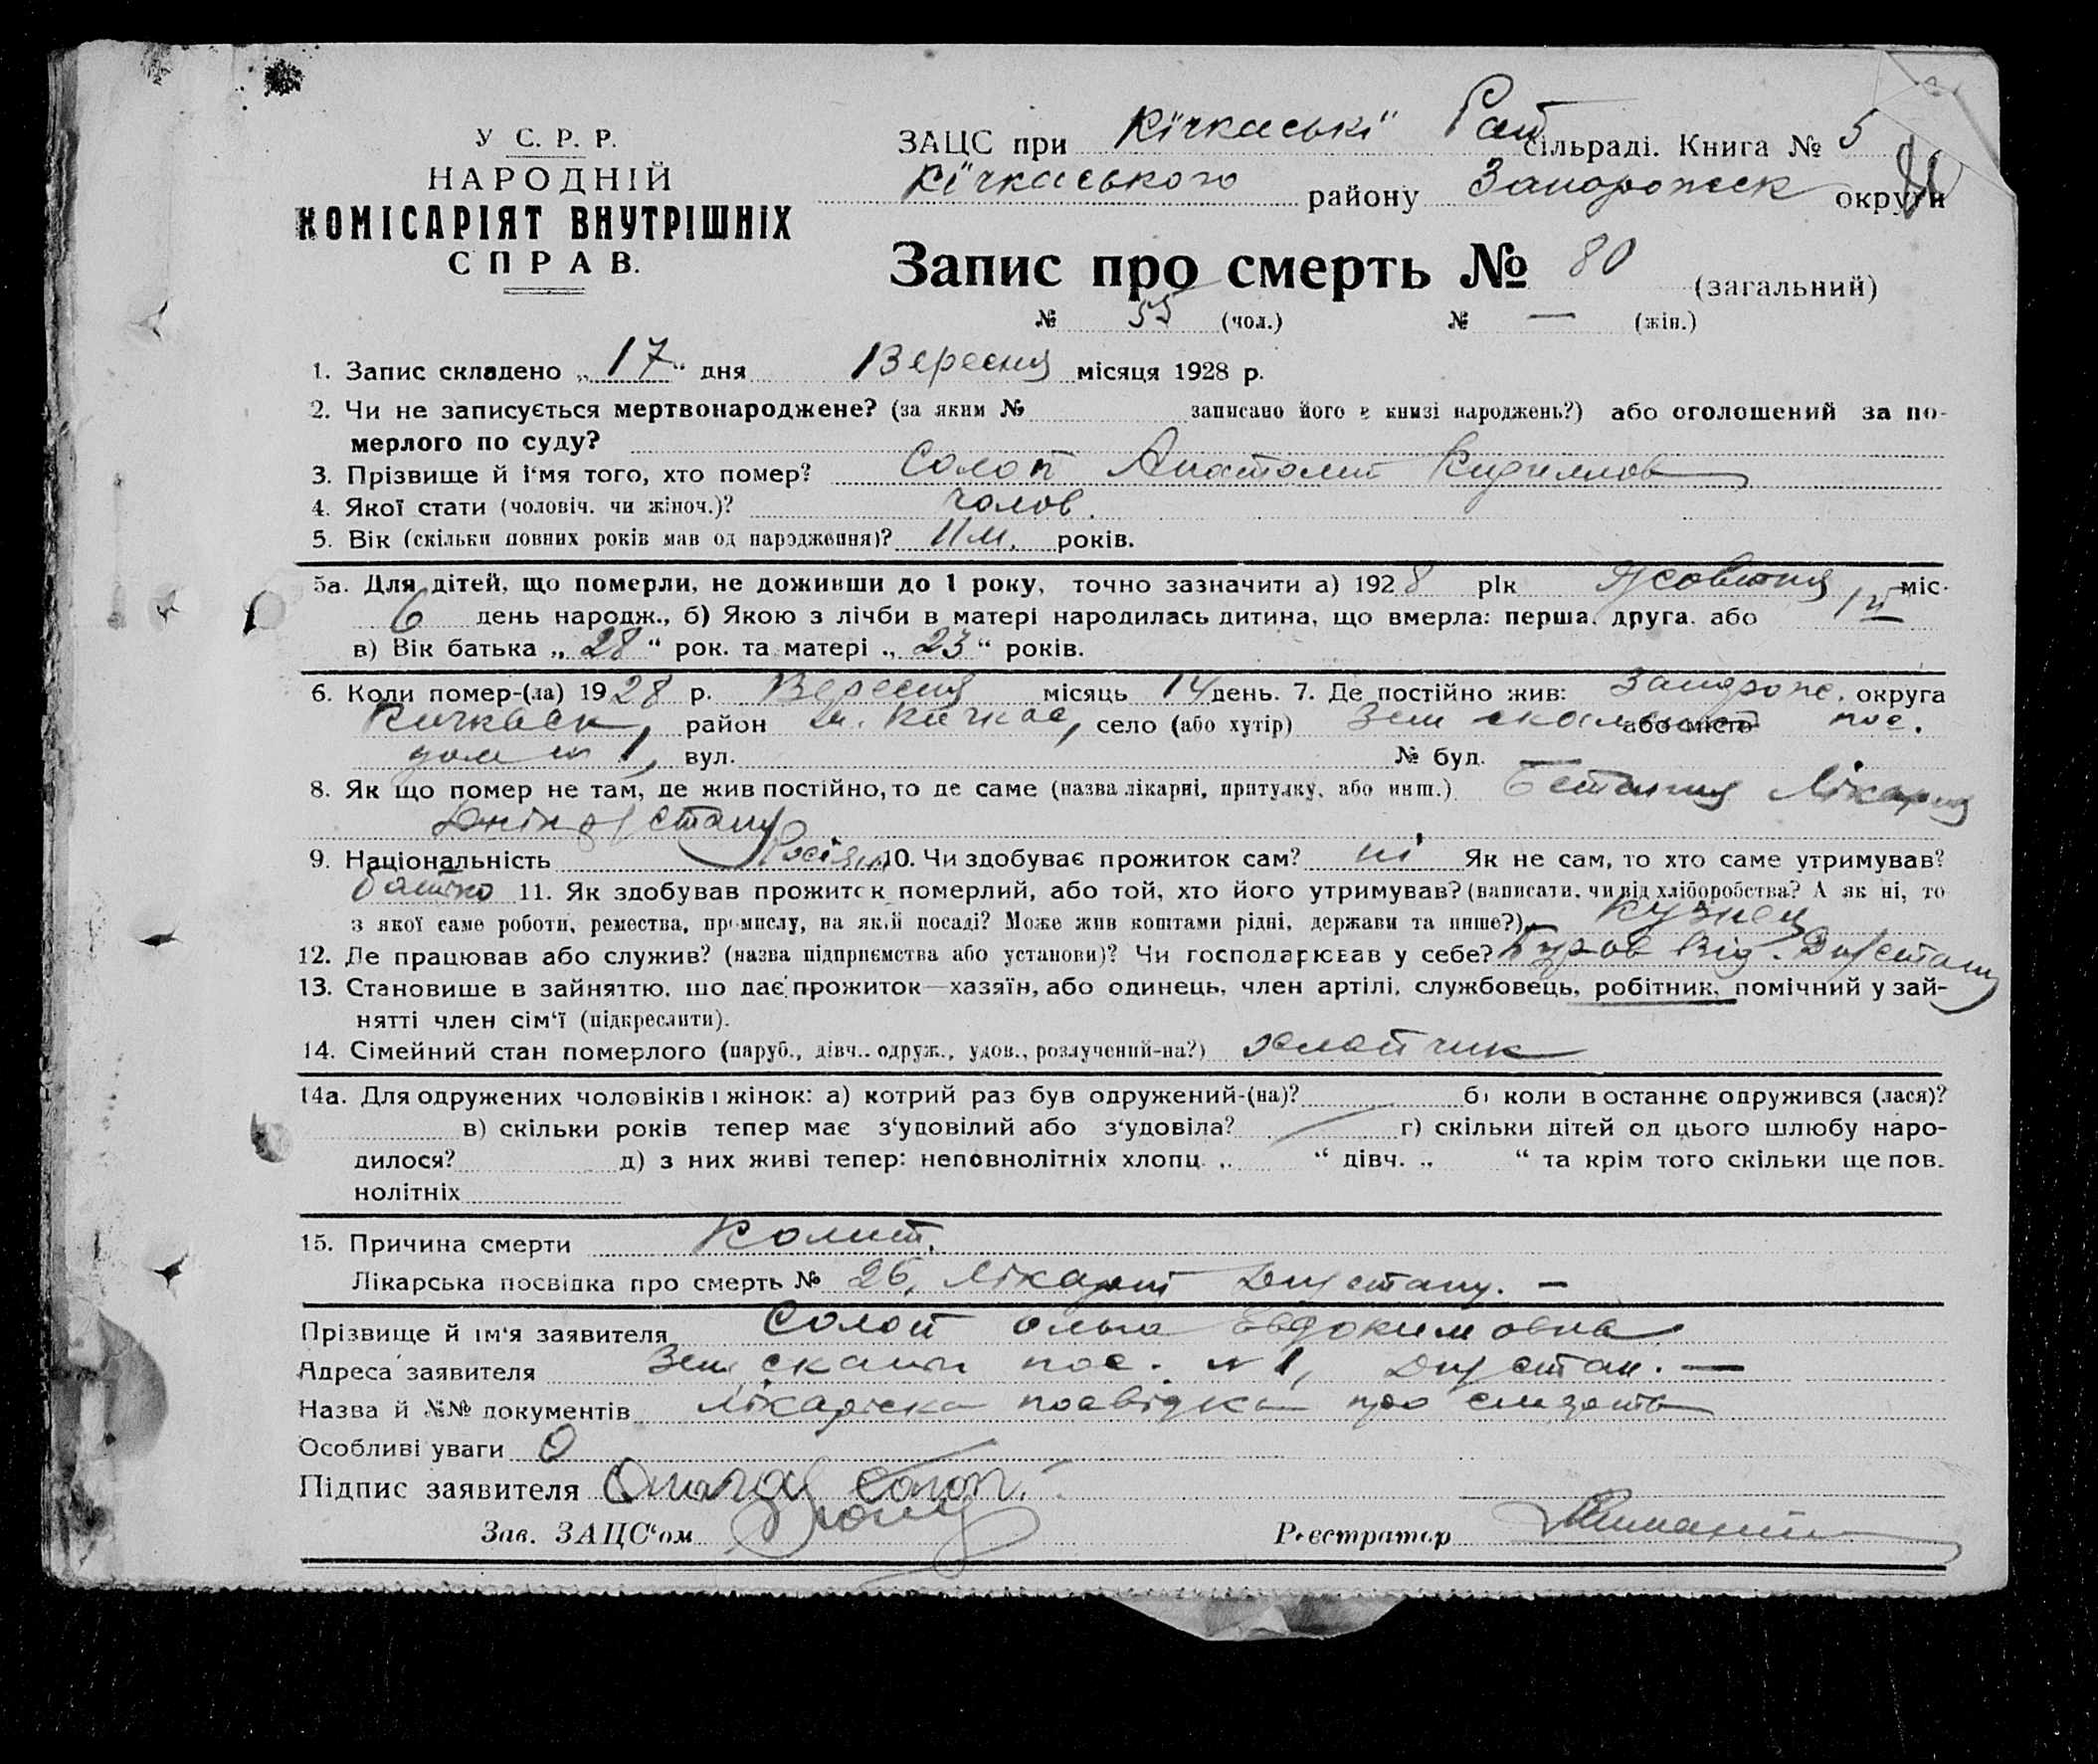 У С. Р. Р.
НАРОДНІЙ
КОМІСАРІЯТ ВНУТРІШНІХ
СПРАВ.
ЗАЦС при Кічкаські Рай сільраді. Книга № 5
Кічкаського району Запорожск округи
Запис про смерть № 80 (загальний)
№ 55 (чол.) № — (жін.)
1. Запис складено „17“ дня Вересня місяця 1928 р.
2. Чи не записується мертвонароджене? (за яким № записано його в книзі народжень?) або оголошений за по-
мерлого по суду?
3. Прізвище й і'мя того, хто помер? Солоп Анатолий
4. Якої стати (чоловіч. чи жіноч.)? чолов.
5. Вік (скільки повних років мав од народження)? 11 м. років.
5а. Для дітей, що померли, не доживши до 1 року, точно зазначити а) 1928 рік Жовтня міс.
6 день народж., б) Якою з лічби в матері народилась дитина, що вмерла: перша, друга. або
в) Вік батька „28“ рок. та матері „23“ років.
6. Коли помер-(ла) 1928 р. Вересня місяць 14 день. 7. Де постійно жив: Запорож. округа
Кичкаск, район м. Кичкас, село (або хутір) або місто пос.
дом № 1, вул. № буд. —
8. Як що помер не там, де жив постійно, то де саме (назва лікарні, притулку, або инш.) Лікарня
9. Національність 10. Чи здобуває прожиток сам? ні Як не сам, то хто саме утримував?
батько 11. Як здобував прожиток померлий, або той, хто його утримував? (написати, чи від хліборобства? А як ні, то
з якої саме роботи, ремества, промислу, на якій посаді? Може жив коштами рідні, держави та инше?) кузнец
12. Де працював або служив? (назва підприємства або установи)? Чи господарював у себе? Буров Від. Дніпрстану
13. Становише в зайняттю, що дає прожиток—хазяїн, або одинець, член артілі, службовець, робітник, помічний у зай-
нятті член сім'ї (підкреслити).
14. Сімейний стан померлого (паруб., дівч., одруж., удов., розлучений-на?) хлопчик
14а. Для одружених чоловіків і жінок: а) котрий раз був одружений-(на)? б) коли в останнє одружився (лася)?
в) скільки років тепер має з'уповілий або з'удовіла? г) скільки дітей од цього шлюбу наро-
дилося? д) з них живі тепер: неповнолітніх хлопц. „ “ дівч. „ “ та крім того скільки ще пов.
нолітніх
15. Причина смерти Колит.
Лікарська посвідка про смерть № 26, Лікарні —
Прізвище й ім'я заявителя Солоп Ольга Евдокимовна
Адреса заявителя пос. № 1, —
Назва й №№ документів Лікарска посвідка про смерть
Особливі уваги 0
Підпис заявителя Солоп
Зав. ЗАЦС'ом
Реєстратор